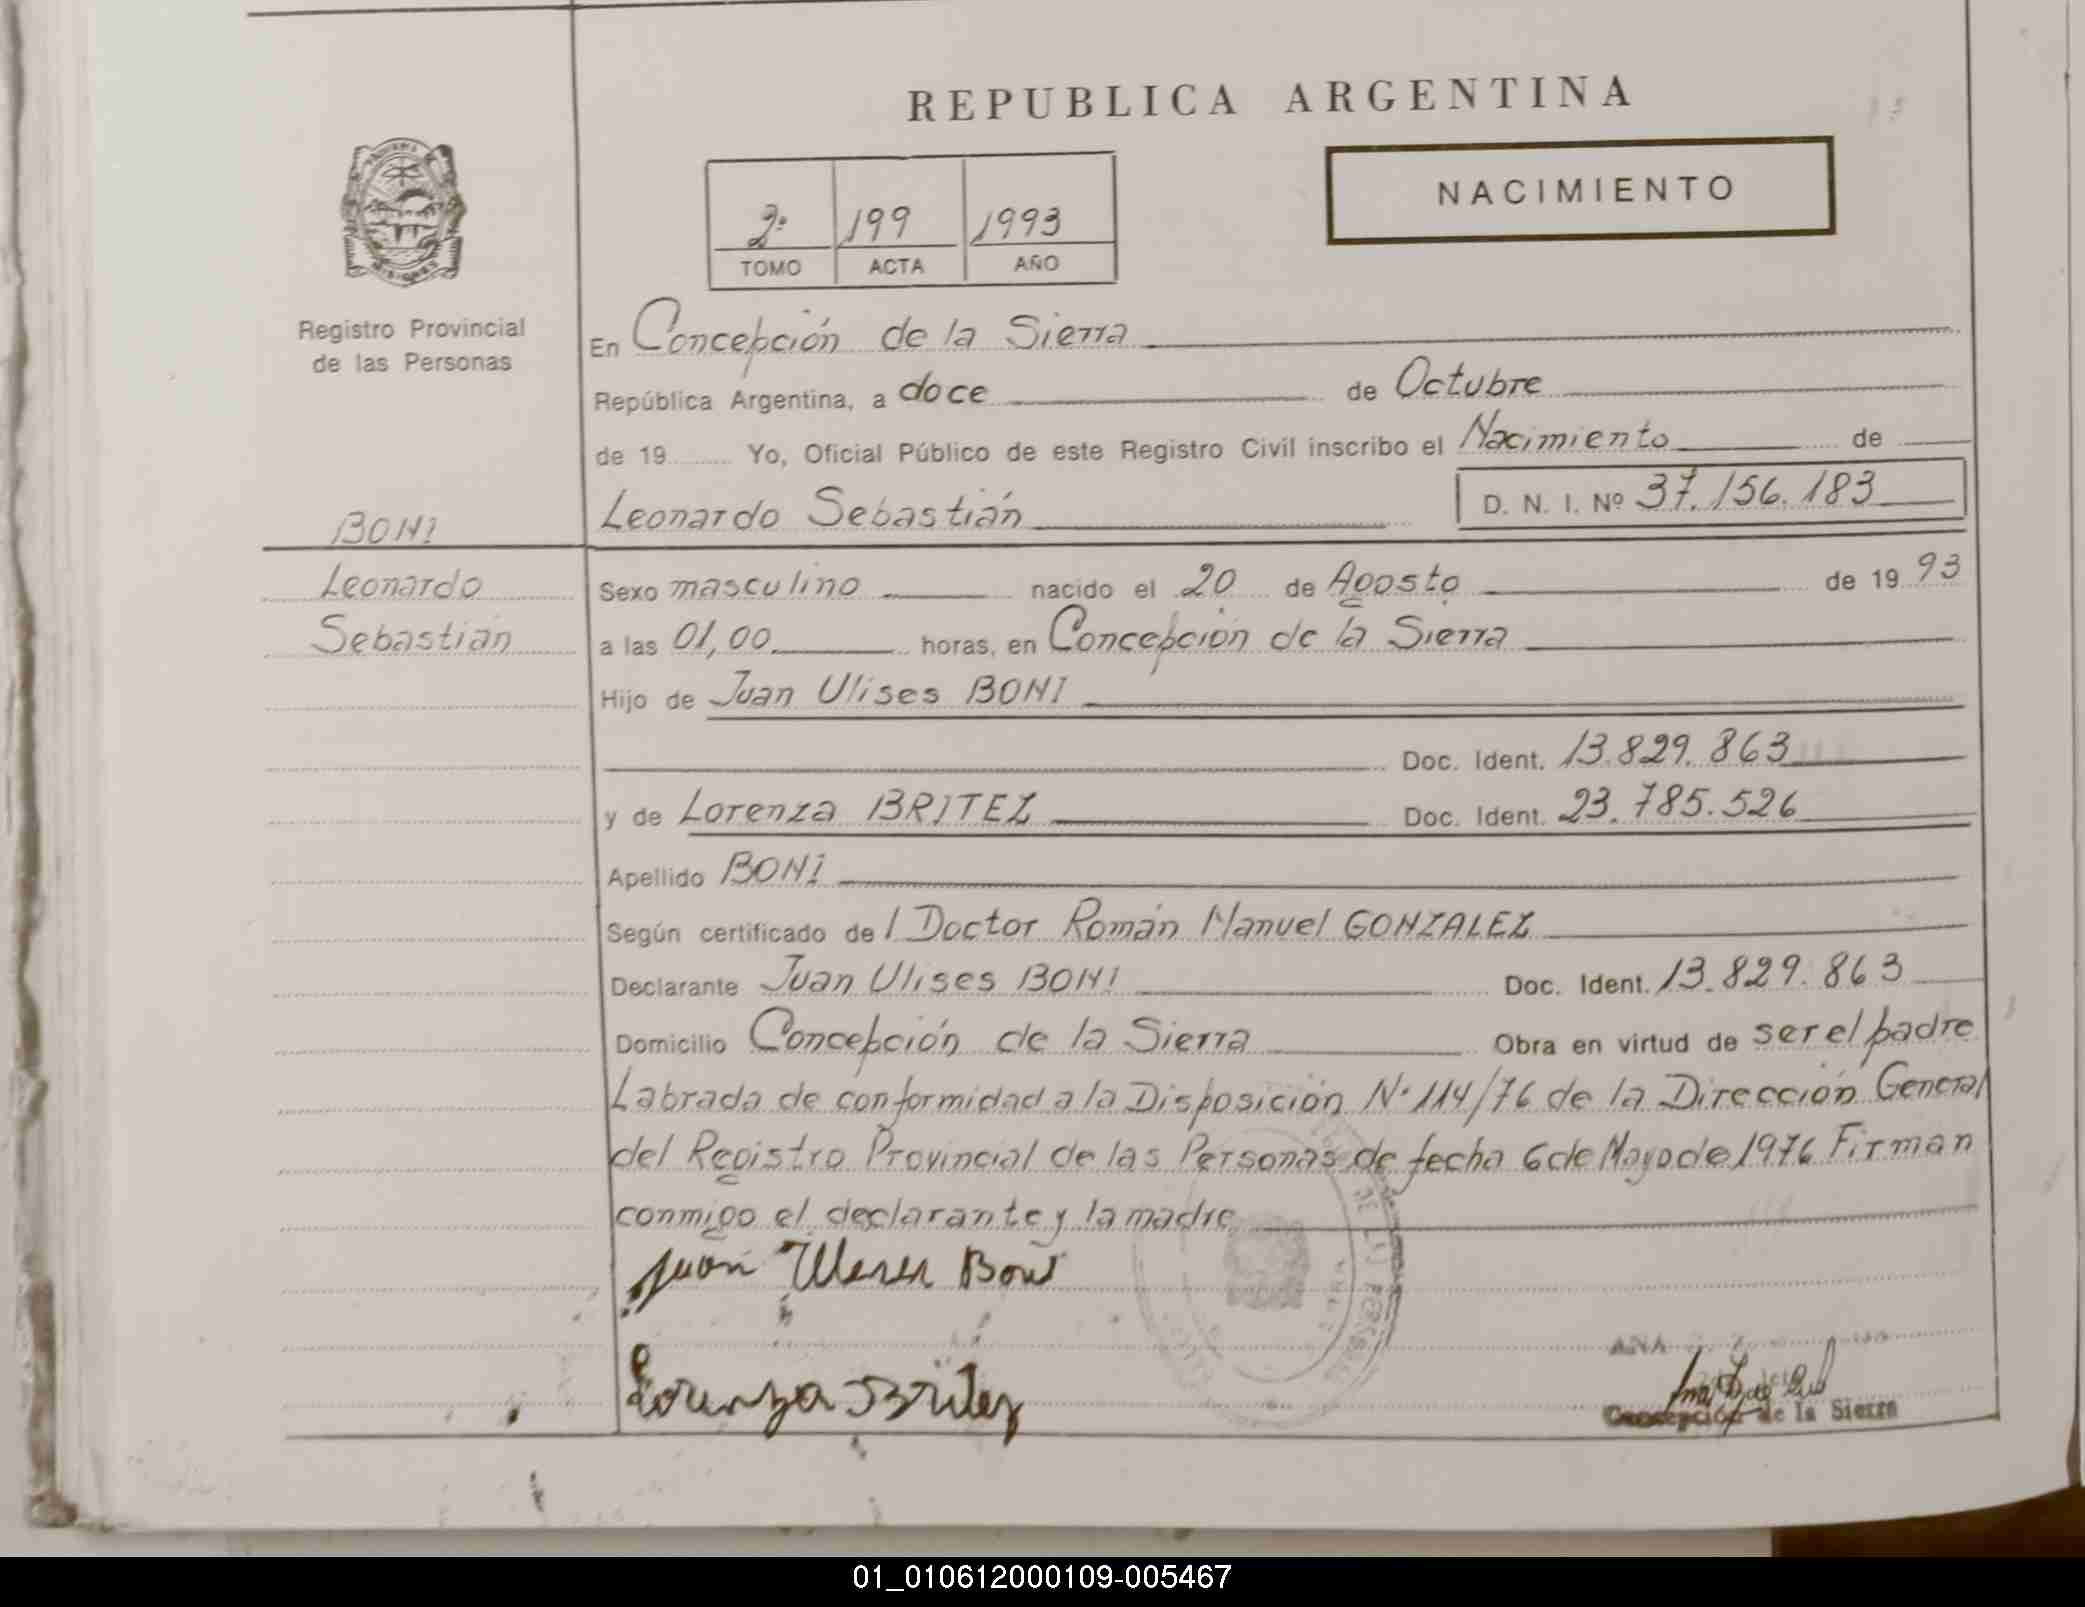 REPUBLICA ARGENTINA
NACIMIENTO
2º 199 1993
TOMO ACTA AÑO
Registro Provincial
de las Personas
En Concepción de la Sierra
República Argentina, a doce de Octubre
de 19 Yo, Oficial Público de este Registro Civil inscribo el Nacimiento de
Leonardo Sebastián D. N. I. Nº 37.156.183
BONI
Leonardo
Sebastián
Sexo masculino nacido el 20 de Agosto de 19 93
a las 01,00 horas, en Concepción de la Sierra
Hijo de Juan Ulises BONI
Doc. Ident. 13.829.863
y de Lorenza BRITEZ Doc. Ident. 23.785.526
Apellido BONI
Según certificado de l Doctor Román Manuel GONZALEZ
Declarante Juan Ulises BONI Doc. Ident. 13.829.863
Domicilio Concepción de la Sierra Obra en virtud de ser el padre
Labrada de conformidad a la Disposición Nº 114/76 de la Dirección General
del Registro Provincial de las Personas de fecha 6 de Mayo de 1976 Firman
conmigo el declarante y la madre
Juan Boni
Lorenza Britez
ANA
Concepción de la Sierra
01_010612000109-005467